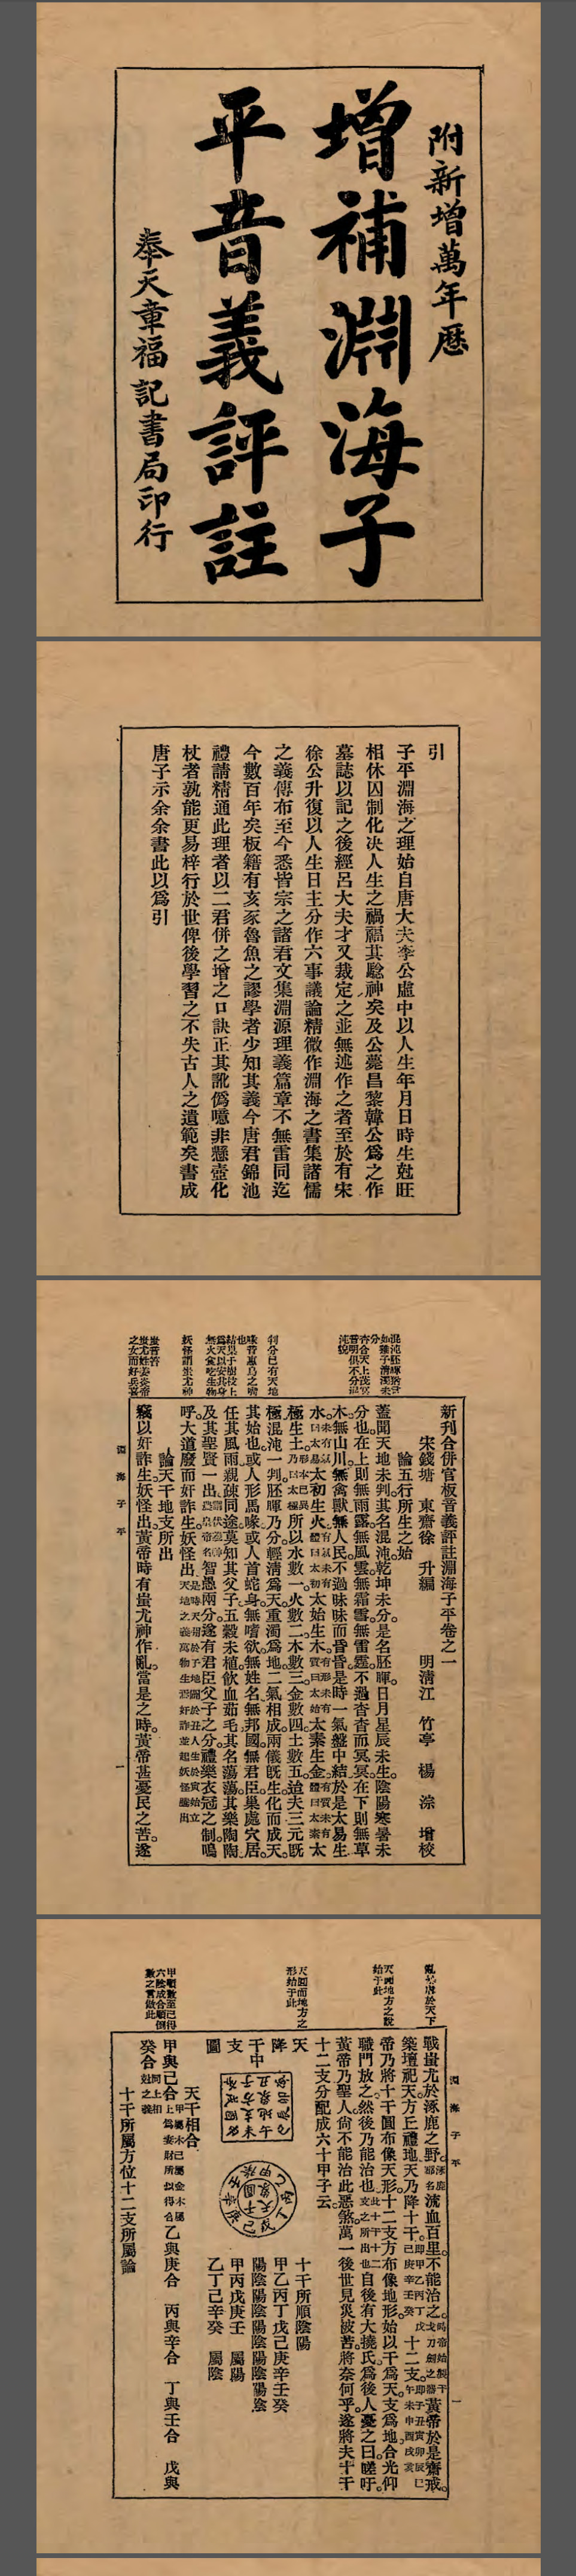 附新增萬年歷
增補淵海子
平音義評註
奉天章福記書局印行
引
子平淵海之理始自唐大夫李公虛中以人生年月日時生尅旺
相休囚制化决人生之禍福其驗神矣及公薨昌黎韓公爲之作
墓誌以記之後經呂大夫才又裁定之並無述作之者至於有宋
徐公升復以人生日主分作六事議論精微作淵海之書集諸儒
之義傳布至今悉皆宗之諸君文集淵源理義篇章不無雷同迄
今數百年矣板籍有亥豕魯魚之謬學者少知其義今唐君錦池
禮請精通此理者以二君併之增之口訣正其訛僞噫非懸壺化
杖者孰能更易梓行於世俾後學習之不失古人之遺範矣書成
唐子示余余書此以爲引
新刊合併官板音義評註淵海子平卷之一
宋錢塘 東齋徐 升編 明清江 竹亭 楊 淙 增校
論五行所生之始
蓋聞天地未判其名混沌乾坤未分是名胚暉日月星辰未生陰陽寒暑未
分也在上則無雨露無風雲無霜雪無雷霆不過杳杳而冥冥在下則無草
木無山川無禽獸無人民不過昧昧而昏昏是時一氣盤中結於是太易生
水未有氣曰太易太初生火有氣未有體曰太初太始生木有形未有質曰太始太素生金有質未有體曰太素太
極生土形本已具乃曰太極所以水數一火數二木數三金數四土數五迨夫三元旣
極混沌一判胚暉乃分輕清爲天重濁爲地二氣相成兩儀旣生化而成天
其始也或人形鳥喙或人首蛇身無嗜欲無姓名無邦國無君臣巢處穴居
任其風雨親疎同途莫知其父子五穀未植飲血茹毛其名蕩蕩其樂陶陶
及其聖賢一出智愚兩分遂有君臣父子之分禮樂衣冠之制嗚
呼大道廢而奸詐生妖怪出
論天干地支所出
竊以奸詐生妖怪出黃帝時有蚩尤神作亂當是之時黃帝甚憂民之苦遂
淵海子平
一
戰蚩尤於涿鹿之野流血百里不能治之黃帝於是齋戒
築壇祀天方丘禮地天乃降十干即甲乙丙丁戊己庚辛壬癸十二支即子丑寅卯辰巳午未申酉戌亥
帝乃將十干圓布像天形十二支方布像地形始以干爲天支爲地合光仰
職門放之然後乃能治也此十干十二支之所出也自後有大撓氏爲後人憂之曰嗟吁
黃帝乃聖人尙不能治此惡煞萬一後世見災被苦將奈何乎遂將夫十干
十二支分配成六十甲子云
天降干支圖
十干所順陰陽
甲乙丙丁戊己庚辛壬癸
陽陰陽陰陽陰陽陰陽陰
甲丙戊庚壬 屬陽
乙丁己辛癸 屬陰
天干相合
甲與己合 乙與庚合 丙與辛合 丁與壬合 戊與
癸合
十干所屬方位十二支所屬論
天圓地方之說始於此
天圓而地方之形始于此
淵海子平